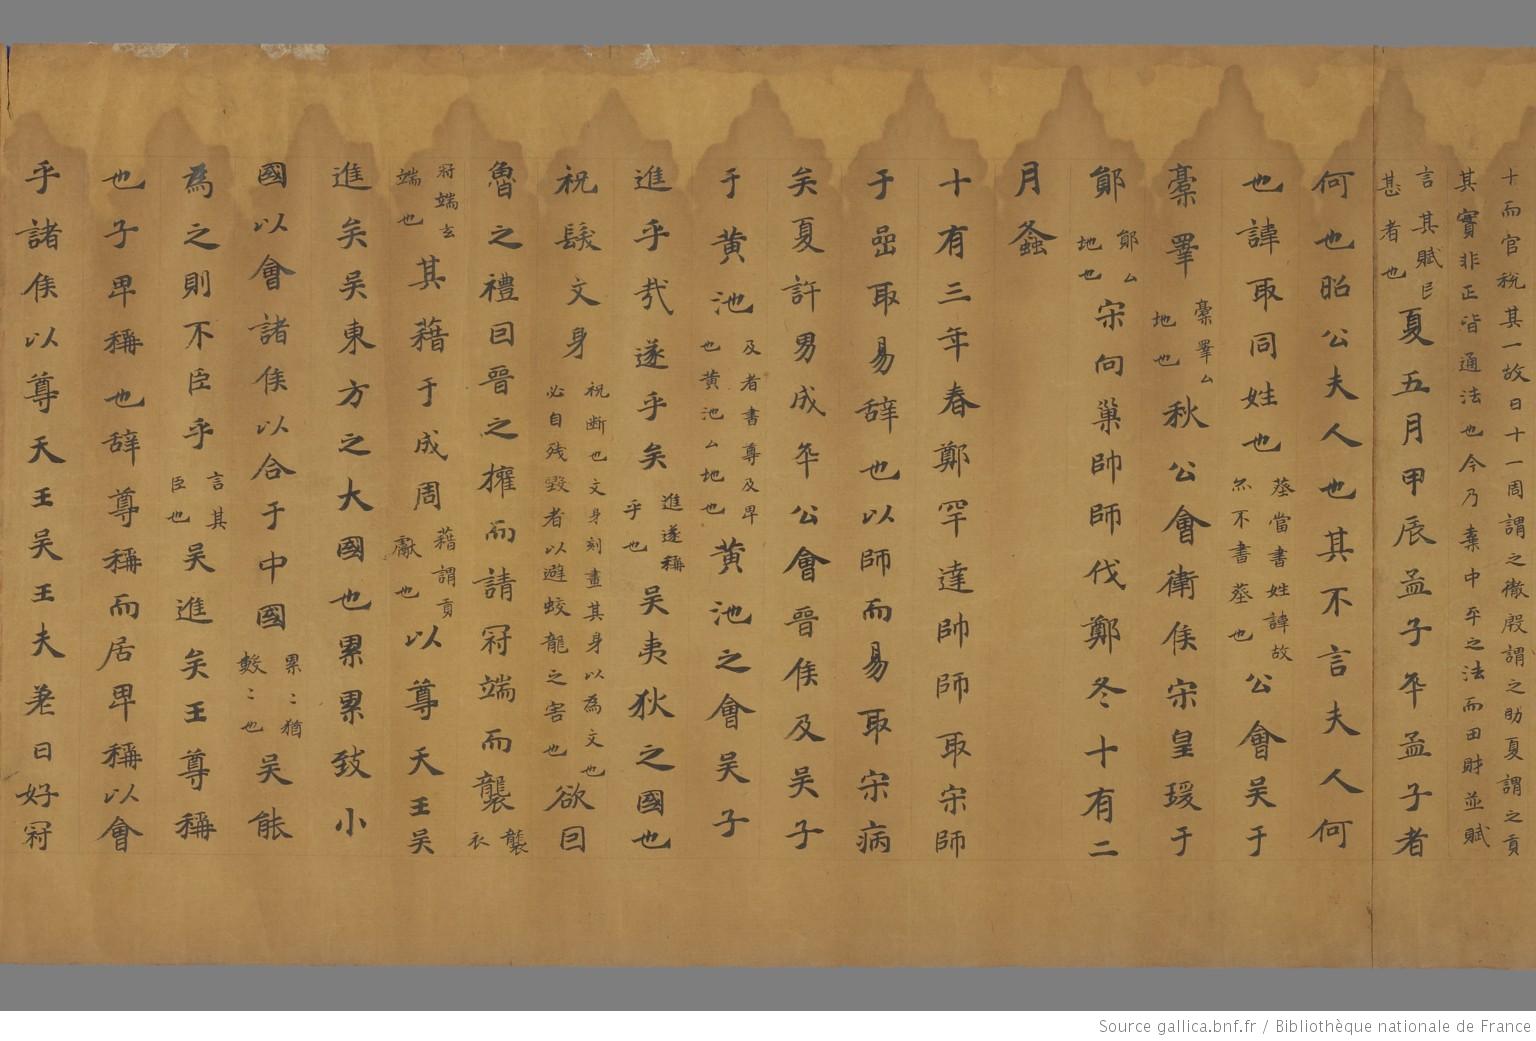 十而官稅其一故曰十一周謂之徹殷謂之助夏謂之貢
其實非正皆通法也今乃棄中平之法而田財並賦
言其賦民甚者也夏五月甲辰孟子卒孟子者
何也昭公夫人也其不言夫人何
也諱取同姓也葬當書姓諱故亦不書葬也公會吳于
橐睪橐睪厶地也秋公會衛侯宋皇瑗于
鄖鄖厶地也宋向巢帥師伐鄭冬十有二
月螽
十有三年春鄭罕達帥師取宋師
于嵒取易辞也以師而易取宋病
矣夏許男成卒公會晉侯及吳子
于黄池及者書尊及卑也黄池厶地也黄池之會吳子
進乎哉遂乎矣進遂稱乎也吳夷狄之國也
祝髮文身祝断也文身刻畫其身以為文也必自残毀者以避蛟龍之害也欲因
魯之禮因晉之權而請冠端而襲襲衣
冠端玄端也其藉于成周藉謂貢獻也以尊天王吳
進矣吳東方之大國也累累致小
國以會諸侯以合于中國累〻猶數〻也吳能
為之則不臣乎言其臣也吳進矣王尊稱
也子卑稱也辞尊稱而居卑稱以會
乎諸侯以尊天王吳王夫差曰好冠
Source gallica.bnf.fr / Bibliothèque nationale de France